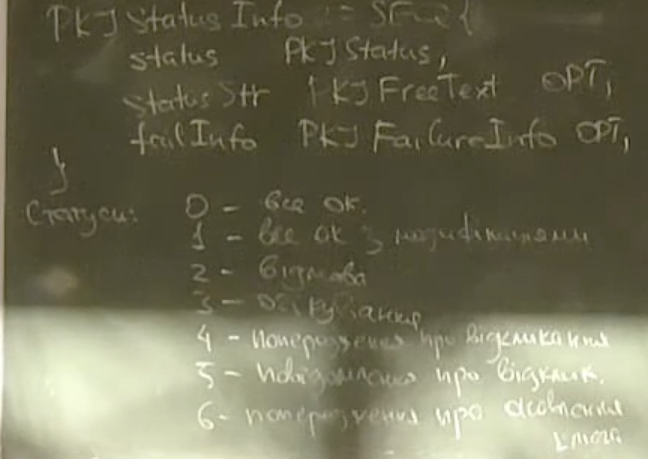 PKJ Status Info := SEQ {
status PKJ Status,
status Str PKJ Free Text OPT,
failInfo PKJ Failure Info OPT,
}
Статуси: 0 - все ок.
1 - все ок з модифікаціями
2 - відмова
3 - очікування
4 - попередження про відкликання
5 - повідомлення про відклик.
6 - попередження про оновлення
ключа